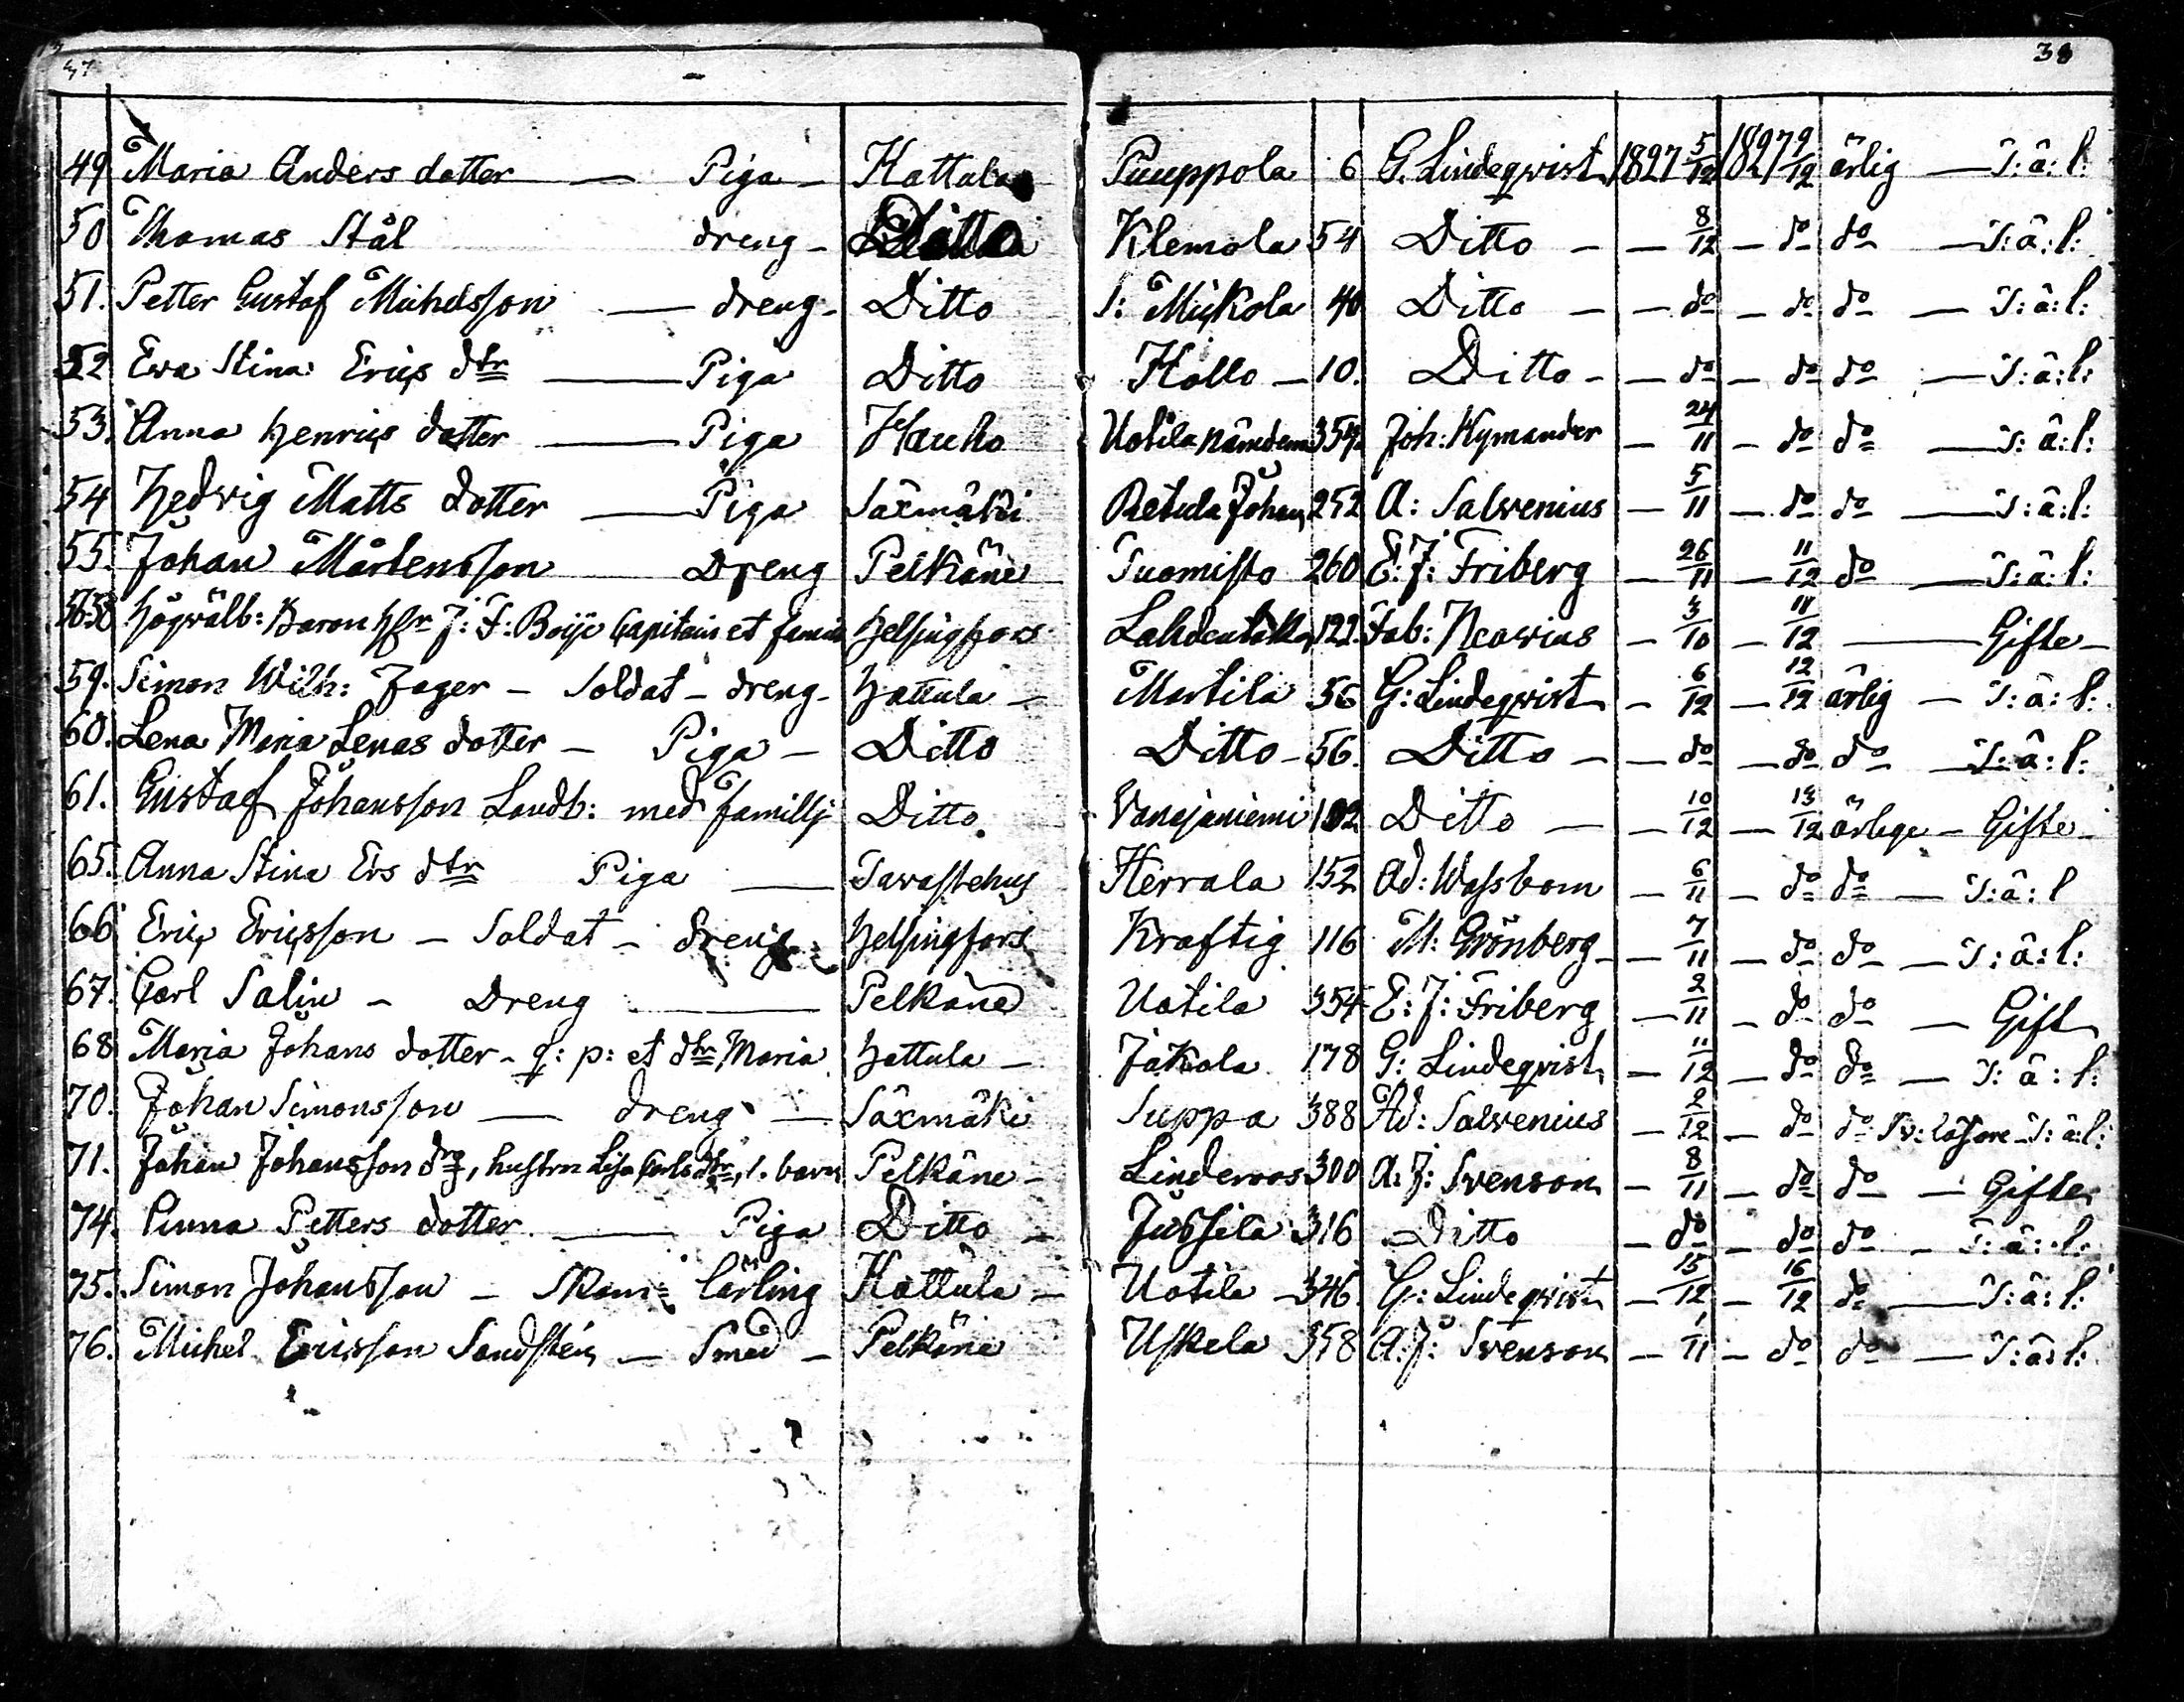 37
38
49. Maria Anders dotter — Piga — Hattula Puuppola 6 G. Lindeqvist 1827 5/12 1827 9/12 ärlig — T: ä: l:
50 Thomas Stål dreng — Ditto Klemola 54 Ditto — — 8/12 — do do — T: ä: l:
51. Petter Gustaf Michelsson — dreng — Ditto Mickola 40 Ditto — — do — do do — T: ä: l:
52 Ewa Stina Erics dtr — Piga Ditto Hollo — 10. Ditto — — do — do do — T: ä: l:
53. Anna Henrics dotter — Piga Hauho Uotila nämdem 354. Joh: Kymander — 24/11 — do do — T: ä: l:
54 Hedvig Matts dotter — Piga Säxmäki Retula Johan 252 A: Salvenius — 5/11 — do do — T: ä: l:
55. Johan Mårtensson — Dreng Pelkäne Tuomisto 260 E: J: Friberg — 26/11 — 11/12 do — T: ä: l:
56-58 Högwälb: Baron Hr J: F: Boije Capitain et famil Helsingfors 122. Fab: Neovius — 3/10 — 11/12 — Gifte —
59. Simon Wilh: Jager — Soldat — dreng — Hattula — Martila 56 G: Lindeqvist — 6/12 — 12/12 ärlig — T: ä: l:
60. Lena Maria Lenas dotter — Piga — Ditto Ditto — 56. Ditto — — do — do do — T: ä: l:
61. Gustaf Johansson Landb: med familj Ditto Vanajaniemi 102 Ditto — — 10/12 — 13/12 ärlige — Gifte —
65. Anna Stina Ers dtr Piga — Tavastehus Herrala 152 Ad: Wassbom — 6/11 — do do — T: ä: l
66 Eric Ericsson — Soldat — dreng Helsingfors Kraftig 116 M: Grönberg — — 7/11 — do do — T: ä: l:
67. Carl Salin — Dreng — Pelkäne Uotila 354 E: J: Friberg — 2/11 — do do — Gift
68 Maria Johans dotter — q: p: et dtr Maria Hattula — Jakola 178 G: Lindeqvist — 11/12 — do do — T: ä: l:
70. Johan Simonsson — dreng — Säxmäki Suppa 388 Ad: Salvenius — 2/12 — do do Sv: läsare — T: ä: l:
71. Johan Johansson drg, hustru Lisa Carls dtr, 1. barn Pelkäne — Linderoos 300 A: J: Svenson — 8/11 — do do — Gifte
74. Anna Petters dotter — Piga Ditto — Jussila 316 Ditto — do — do do — T: ä: l:
75. Simon Johansson — Skom: Lärling Hattula — Uotila — 346. G: Lindeqvist — 15/12 — 16/12 do — T: ä: l:
76. Michel Ericsson Sandstén — Smed — Pelkäne Uskela 358 A: J: Svenson — 1/11 — do do — T: ä: l: